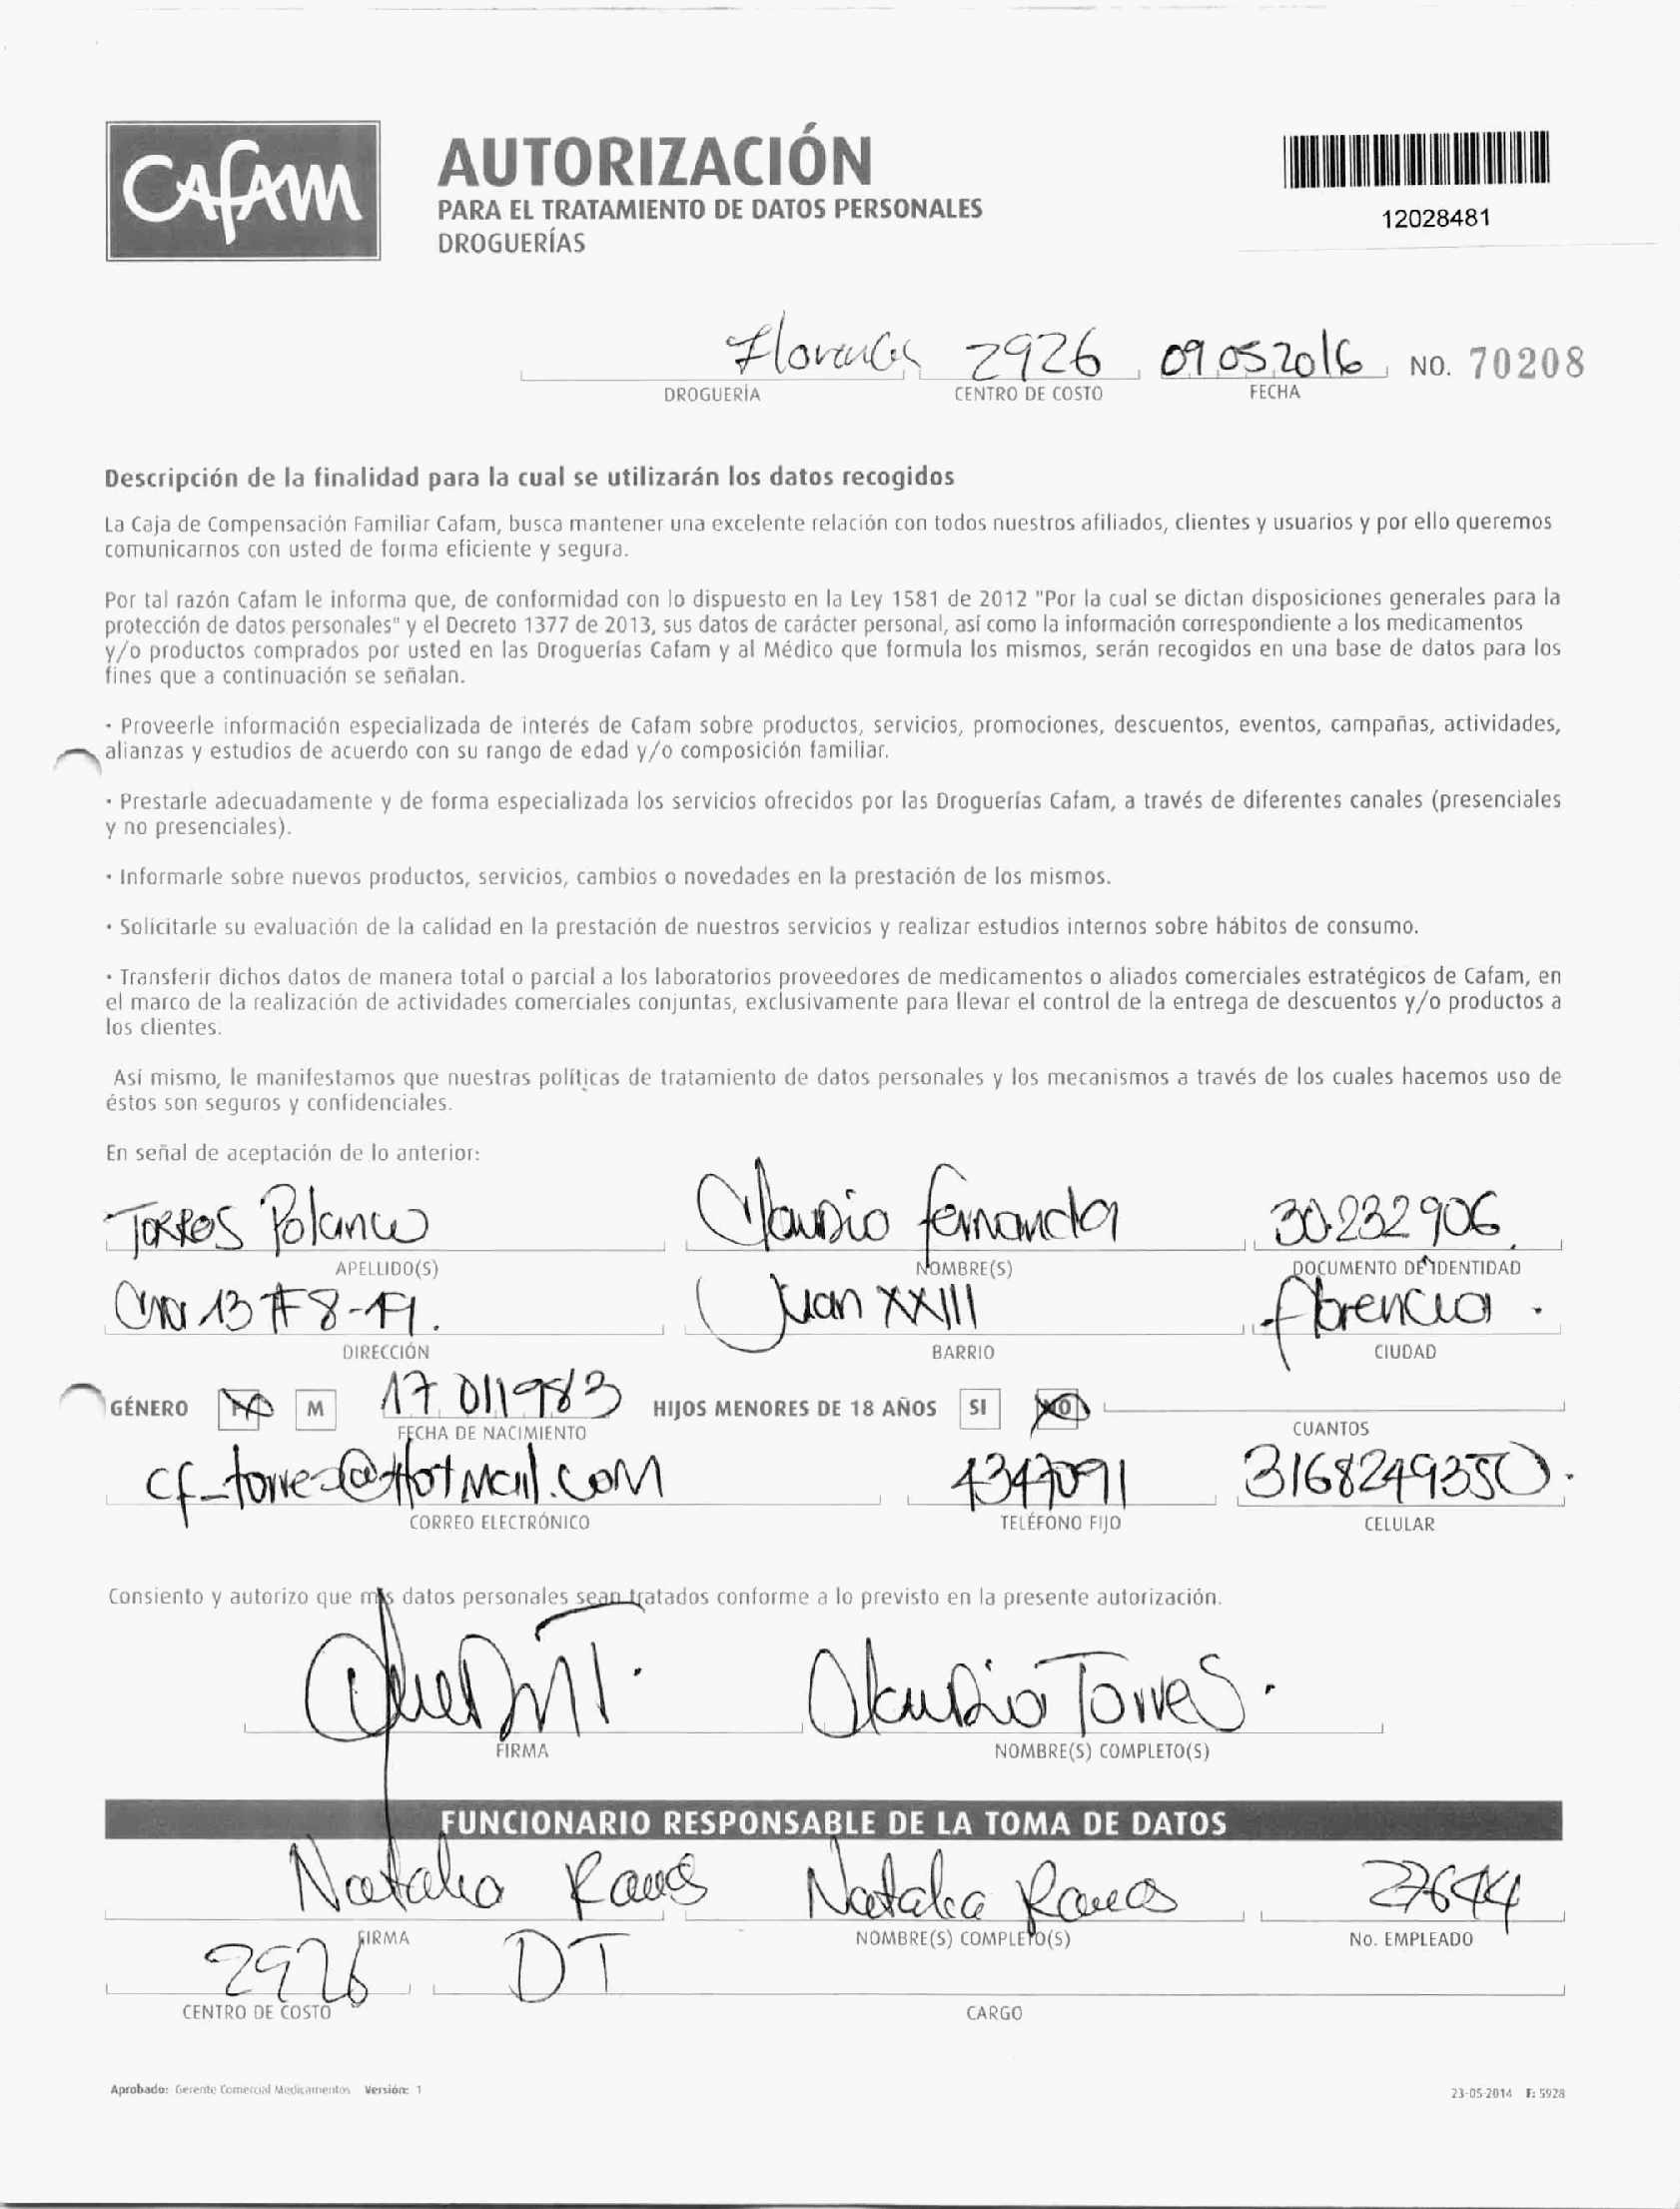 CAFAM
AUTORIZACIÓN
PARA EL TRATAMIENTO DE DATOS PERSONALES
DROGUERÍAS
12028481
Florencia 2926 09 05 2016 NO. 70208
DROGUERÍA CENTRO DE COSTO FECHA
Descripción de la finalidad para la cual se utilizarán los datos recogidos
La Caja de Compensación Familiar Cafam, busca mantener una excelente relación con todos nuestros afiliados, clientes y usuarios y por ello queremos
comunicarnos con usted de forma eficiente y segura.
Por tal razón Cafam le informa que, de conformidad con lo dispuesto en la Ley 1581 de 2012 "Por la cual se dictan disposiciones generales para la
protección de datos personales" y el Decreto 1377 de 2013, sus datos de carácter personal, así como la información correspondiente a los medicamentos
y/o productos comprados por usted en las Droguerías Cafam y al Médico que formula los mismos, serán recogidos en una base de datos para los
fines que a continuación se señalan.
· Proveerle información especializada de interés de Cafam sobre productos, servicios, promociones, descuentos, eventos, campañas, actividades,
alianzas y estudios de acuerdo con su rango de edad y/o composición familiar.
· Prestarle adecuadamente y de forma especializada los servicios ofrecidos por las Droguerías Cafam, a través de diferentes canales (presenciales
y no presenciales).
· Informarle sobre nuevos productos, servicios, cambios o novedades en la prestación de los mismos.
· Solicitarle su evaluación de la calidad en la prestación de nuestros servicios y realizar estudios internos sobre hábitos de consumo.
· Transferir dichos datos de manera total o parcial a los laboratorios proveedores de medicamentos o aliados comerciales estratégicos de Cafam, en
el marco de la realización de actividades comerciales conjuntas, exclusivamente para llevar el control de la entrega de descuentos y/o productos a
los clientes.
Así mismo, le manifestamos que nuestras políticas de tratamiento de datos personales y los mecanismos a través de los cuales hacemos uso de
éstos son seguros y confidenciales.
En señal de aceptación de lo anterior:
Torres Polanco Claudia fernanda 30.232906
APELLIDO(S) NOMBRE(S) DOCUMENTO DE IDENTIDAD
13 # 8-19. Juan XXIII florencia.
DIRECCIÓN BARRIO CIUDAD
GÉNERO F M 17 01 1983 HIJOS MENORES DE 18 AÑOS SI NO
FECHA DE NACIMIENTO CUANTOS
cf_torres@Hotmail.com 4347091 3168249350.
CORREO ELECTRÓNICO TELÉFONO FIJO CELULAR
Consiento y autorizo que mis datos personales sean tratados conforme a lo previsto en la presente autorización.
Claudia Torres.
FIRMA NOMBRE(S) COMPLETO(S)
FUNCIONARIO RESPONSABLE DE LA TOMA DE DATOS
Natalia Natalia 27644
FIRMA NOMBRE(S) COMPLETO(S) No. EMPLEADO
2926 DT
CENTRO DE COSTO CARGO
Aprobado: Gerente Comercial Medicamentos Versión: 1
23-05-2014 F: 5928